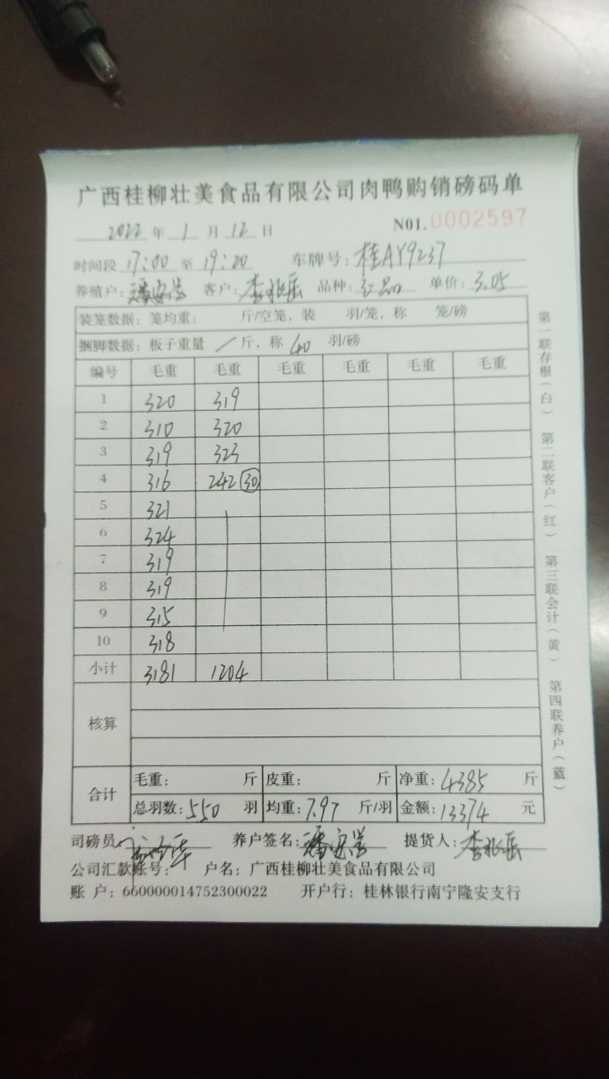 广西桂柳壮美食品有限公司肉鸭购销磅码单
2022 年 1 月 12 日 N01.0002597
时间段 17:00 至 19:20 车牌号：桂AY9237
养殖户： 客户：李 品种： 单价：3.05
装笼数据：笼均重： 斤/空笼，装 羽/笼，称 笼/磅
捆脚数据：板子重量 / 斤，称 40 羽/磅
编号 毛重 毛重 毛重 毛重 毛重 毛重
1 320 319
2 310 320
3 319 323
4 316 242 30
5 321
6 324
7 319
8 319
9 315
10 318
小计 3181 1204
核算
合计 毛重： 斤 皮重： 斤 净重：4385 斤
总羽数：550 羽 均重：7.97 斤/羽 金额：13374 元
司磅员 养户签名： 提货人：李
公司汇款账号： 户名：广西桂柳壮美食品有限公司
账 户：660000014752300022 开户行：桂林银行南宁隆安支行
第一联存根（白） 第二联客户（红） 第三联会计（黄） 第四联养户（蓝）